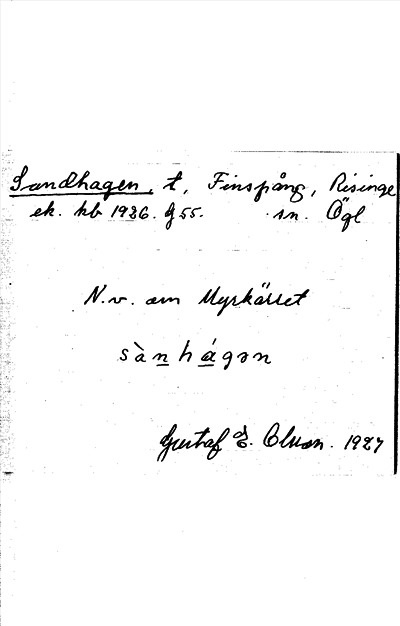 Sandhagen, t, Finspång, Risinge
ek. kb 1936. G 55. sn. Ögl
N.v. om Myrkärret
sànhágən
Gustaf E. Olsson. 1927